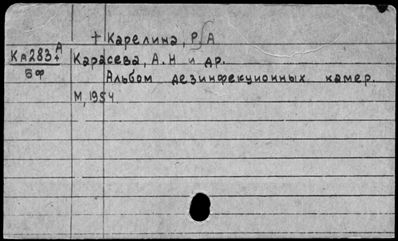 + Карелина, Р. А
Ка283 А
Карасева, А. Н и др.
бф
Альбом дезинфекционных камер.
М, 1954.